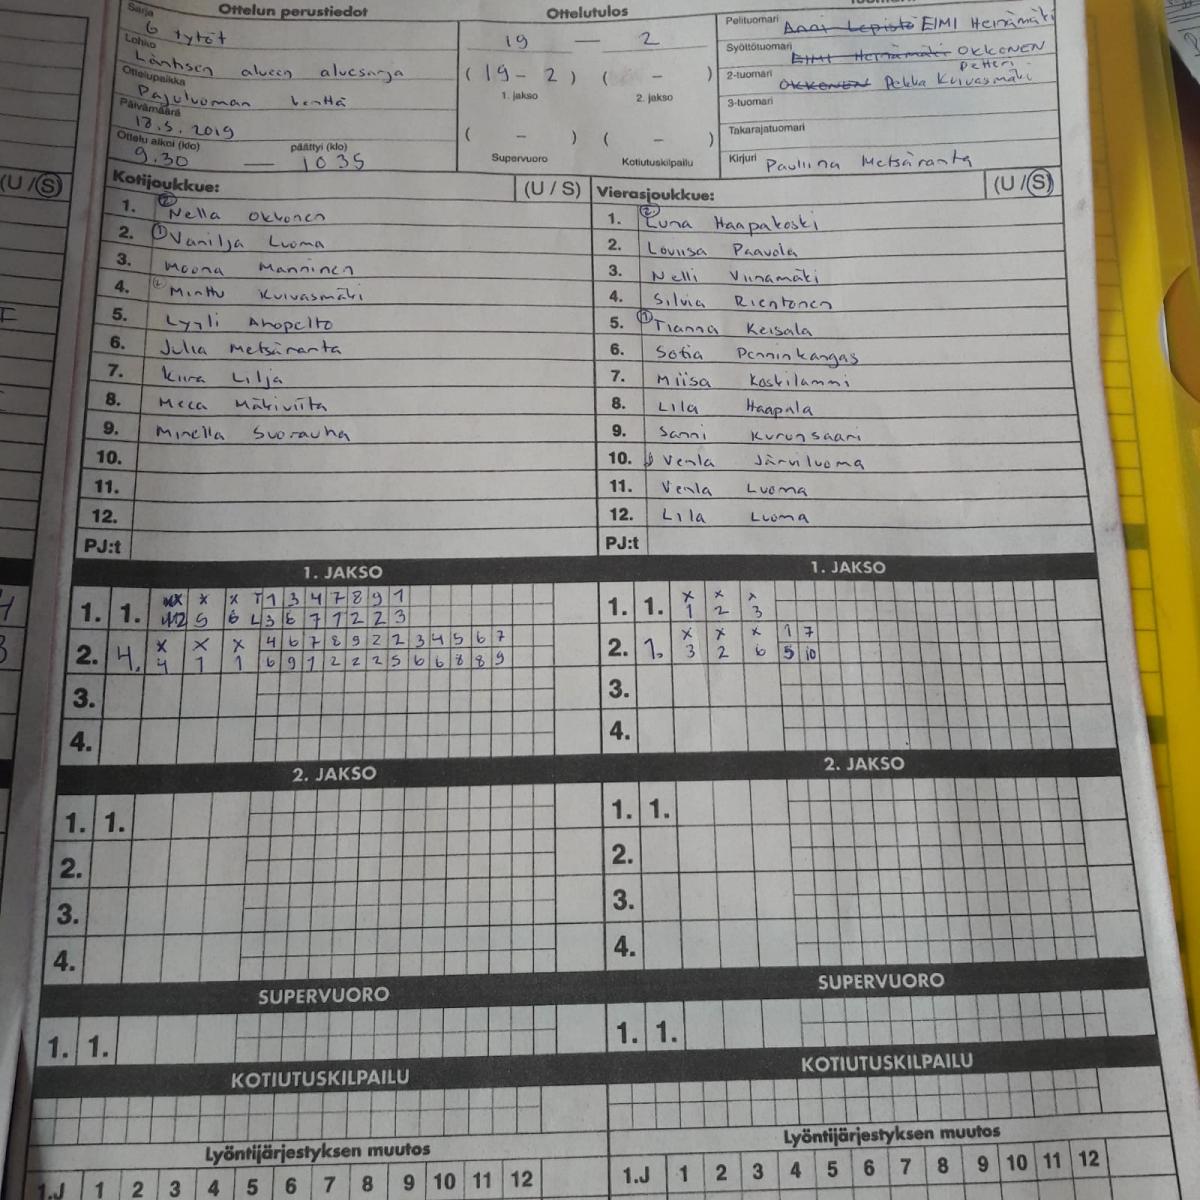 Sarja
Ottelun perustiedot
Ottelutulos
G tytöt
Lohko
Läntisen alueen aluesarja
Ottelupaikka
Pajuluoman kenttä
Päivämäärä
18.5.2019
Ottelu alkoi (klo) päättyi (klo)
9.30 — 1035
19 — 2
( 19 - 2 ) ( - )
1. jakso 2. jakso
( - ) ( - )
Supervuoro Kotiutuskilpailu
Pelituomari Anni Lepistö EIMI Heinämäki
Syöttötuomari EIMI Heinämäki OKKONEN
Petteri
2-tuomari OKKONEN Pekka Kuivasmäki
3-tuomari
Takarajatuomari
Kirjuri Pauliina Metsäranta
(U / S)
Kotijoukkue: (U / S)
1. 2 Nella Okkonen
2. 1 Vanilja Luoma
3. Moona Manninen
4. Minttu Kuivasmäki
5. Lyyli Ahopelto
6. Julia Metsäranta
7. Kiira Lilja
8. Meea Mäkiviita
9. Minella Suorauha
10.
11.
12.
PJ:t
Vierasjoukkue: (U / S)
1. 2. Luna Haapakoski
2. Loviisa Paavola
3. Nelli Viinamäki
4. Silvia Rientonen
5. 1 Tianna Keisala
6. Sofia Penninkangas
7. Miisa Koskilammi
8. Lila Haapala
9. Sanni Kurunsaari
10. Venla Järviluoma
11. Venla Luoma
12. Lila Luoma
PJ:t
1. JAKSO
x x T 1 3 4 7 8 9 1
1. 1. 5 6 L 3 6 7 1 2 2 3
x x x 4 6 7 8 9 2 2 3 4 5 6 7
2. 4. 4 1 1 6 9 1 2 2 2 5 6 6 8 8 9
3.
4.
1. JAKSO
x x x
1. 1. 1 2 3
x x x 1 7
2. 1. 3 2 6 5 10
3.
4.
2. JAKSO
1. 1.
2.
3.
4.
2. JAKSO
1. 1.
2.
3.
4.
SUPERVUORO
1. 1.
SUPERVUORO
1. 1.
KOTIUTUSKILPAILU
KOTIUTUSKILPAILU
Lyöntijärjestyksen muutos
1.J 1 2 3 4 5 6 7 8 9 10 11 12
Lyöntijärjestyksen muutos
1.J 1 2 3 4 5 6 7 8 9 10 11 12